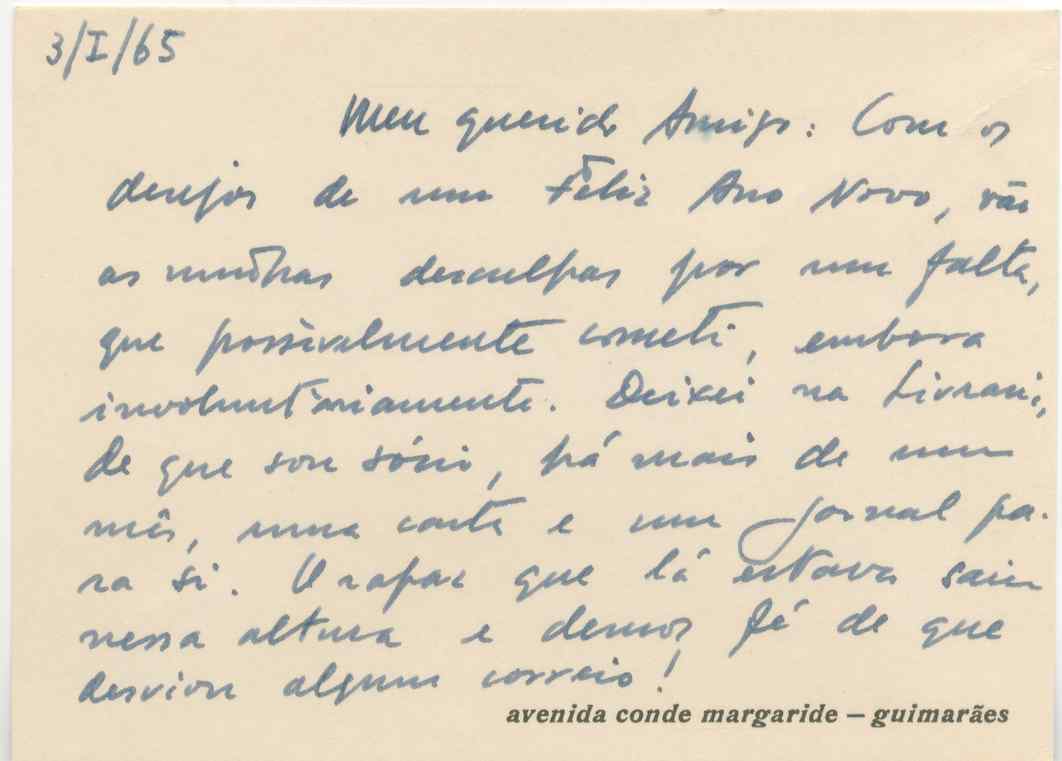 3/I/65
Meu querido Amigo: Com os
desejos de um Feliz Ano Novo, vão
as minhas desculpas por uma falta,
que possivelmente cometi, embora
involuntàriamente. Deixei na Livraria,
de que sou sócio, há mais de um
mês, uma carta e um jornal pa-
ra si. O rapaz que lá estava saiu
nessa altura e demos fé de que
desviou algum correio!
avenida conde margaride – guimarães